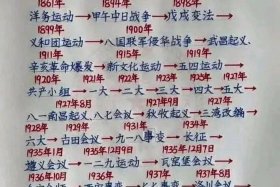 1861年 1894年 1898年
洋务运动→甲午中日战争→戊戌变法→
1899年 1900年
义和团运动→八国联军侵华战争→武昌起义
1911年 1915年 1919年
辛亥革命爆发→新文化运动→五四运动→
1920年 1921年 1922年 1923年 1925年 1927年
共产小组→一大→二大→三大→四大→五大→
1927年8月 1927年9月
八一南昌起义→八七会议→秋收起义→三湾改编→
1928年 1929年 1931年 1934年
六大→古田会议→九一八事变→长征→
1935年1月 1935年12月9日 1935年12月
遵义会议→一二九运动→瓦窑堡会议→
1936年12月 1937年 1937年8月